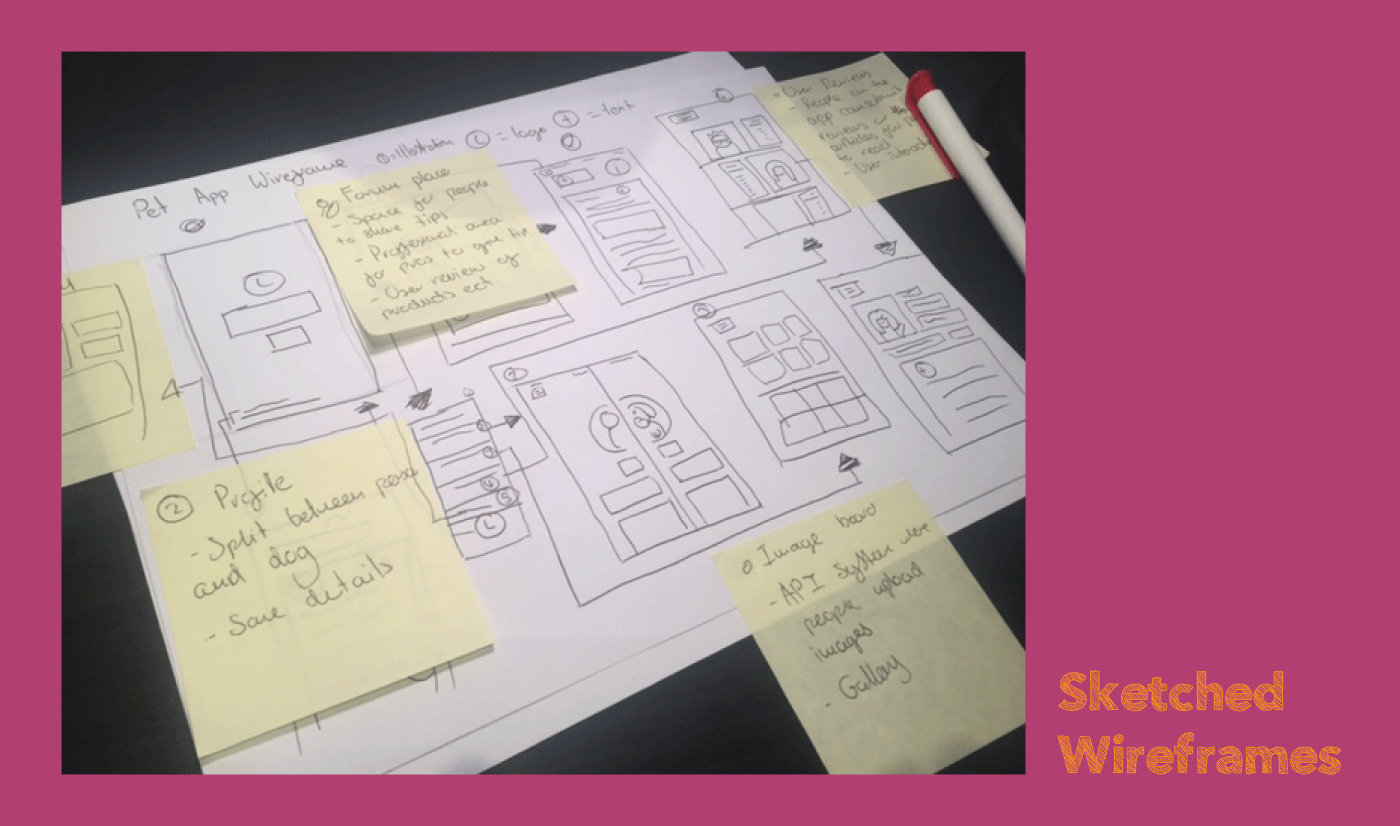 Pet App Wireframe
= Illustration
L = logo
t = text
Forum place
- Space for people
to share tips
- Proffesional area
for pros to give tip
- User review of
products ect.
- User Reviews
- People on the
app
reviews or
articles for
to read
- User
2 Profile
- Split between person
and dog
- Save details
Image board
- API System where
people upload
images
- Gallery
Sketched
Wireframes